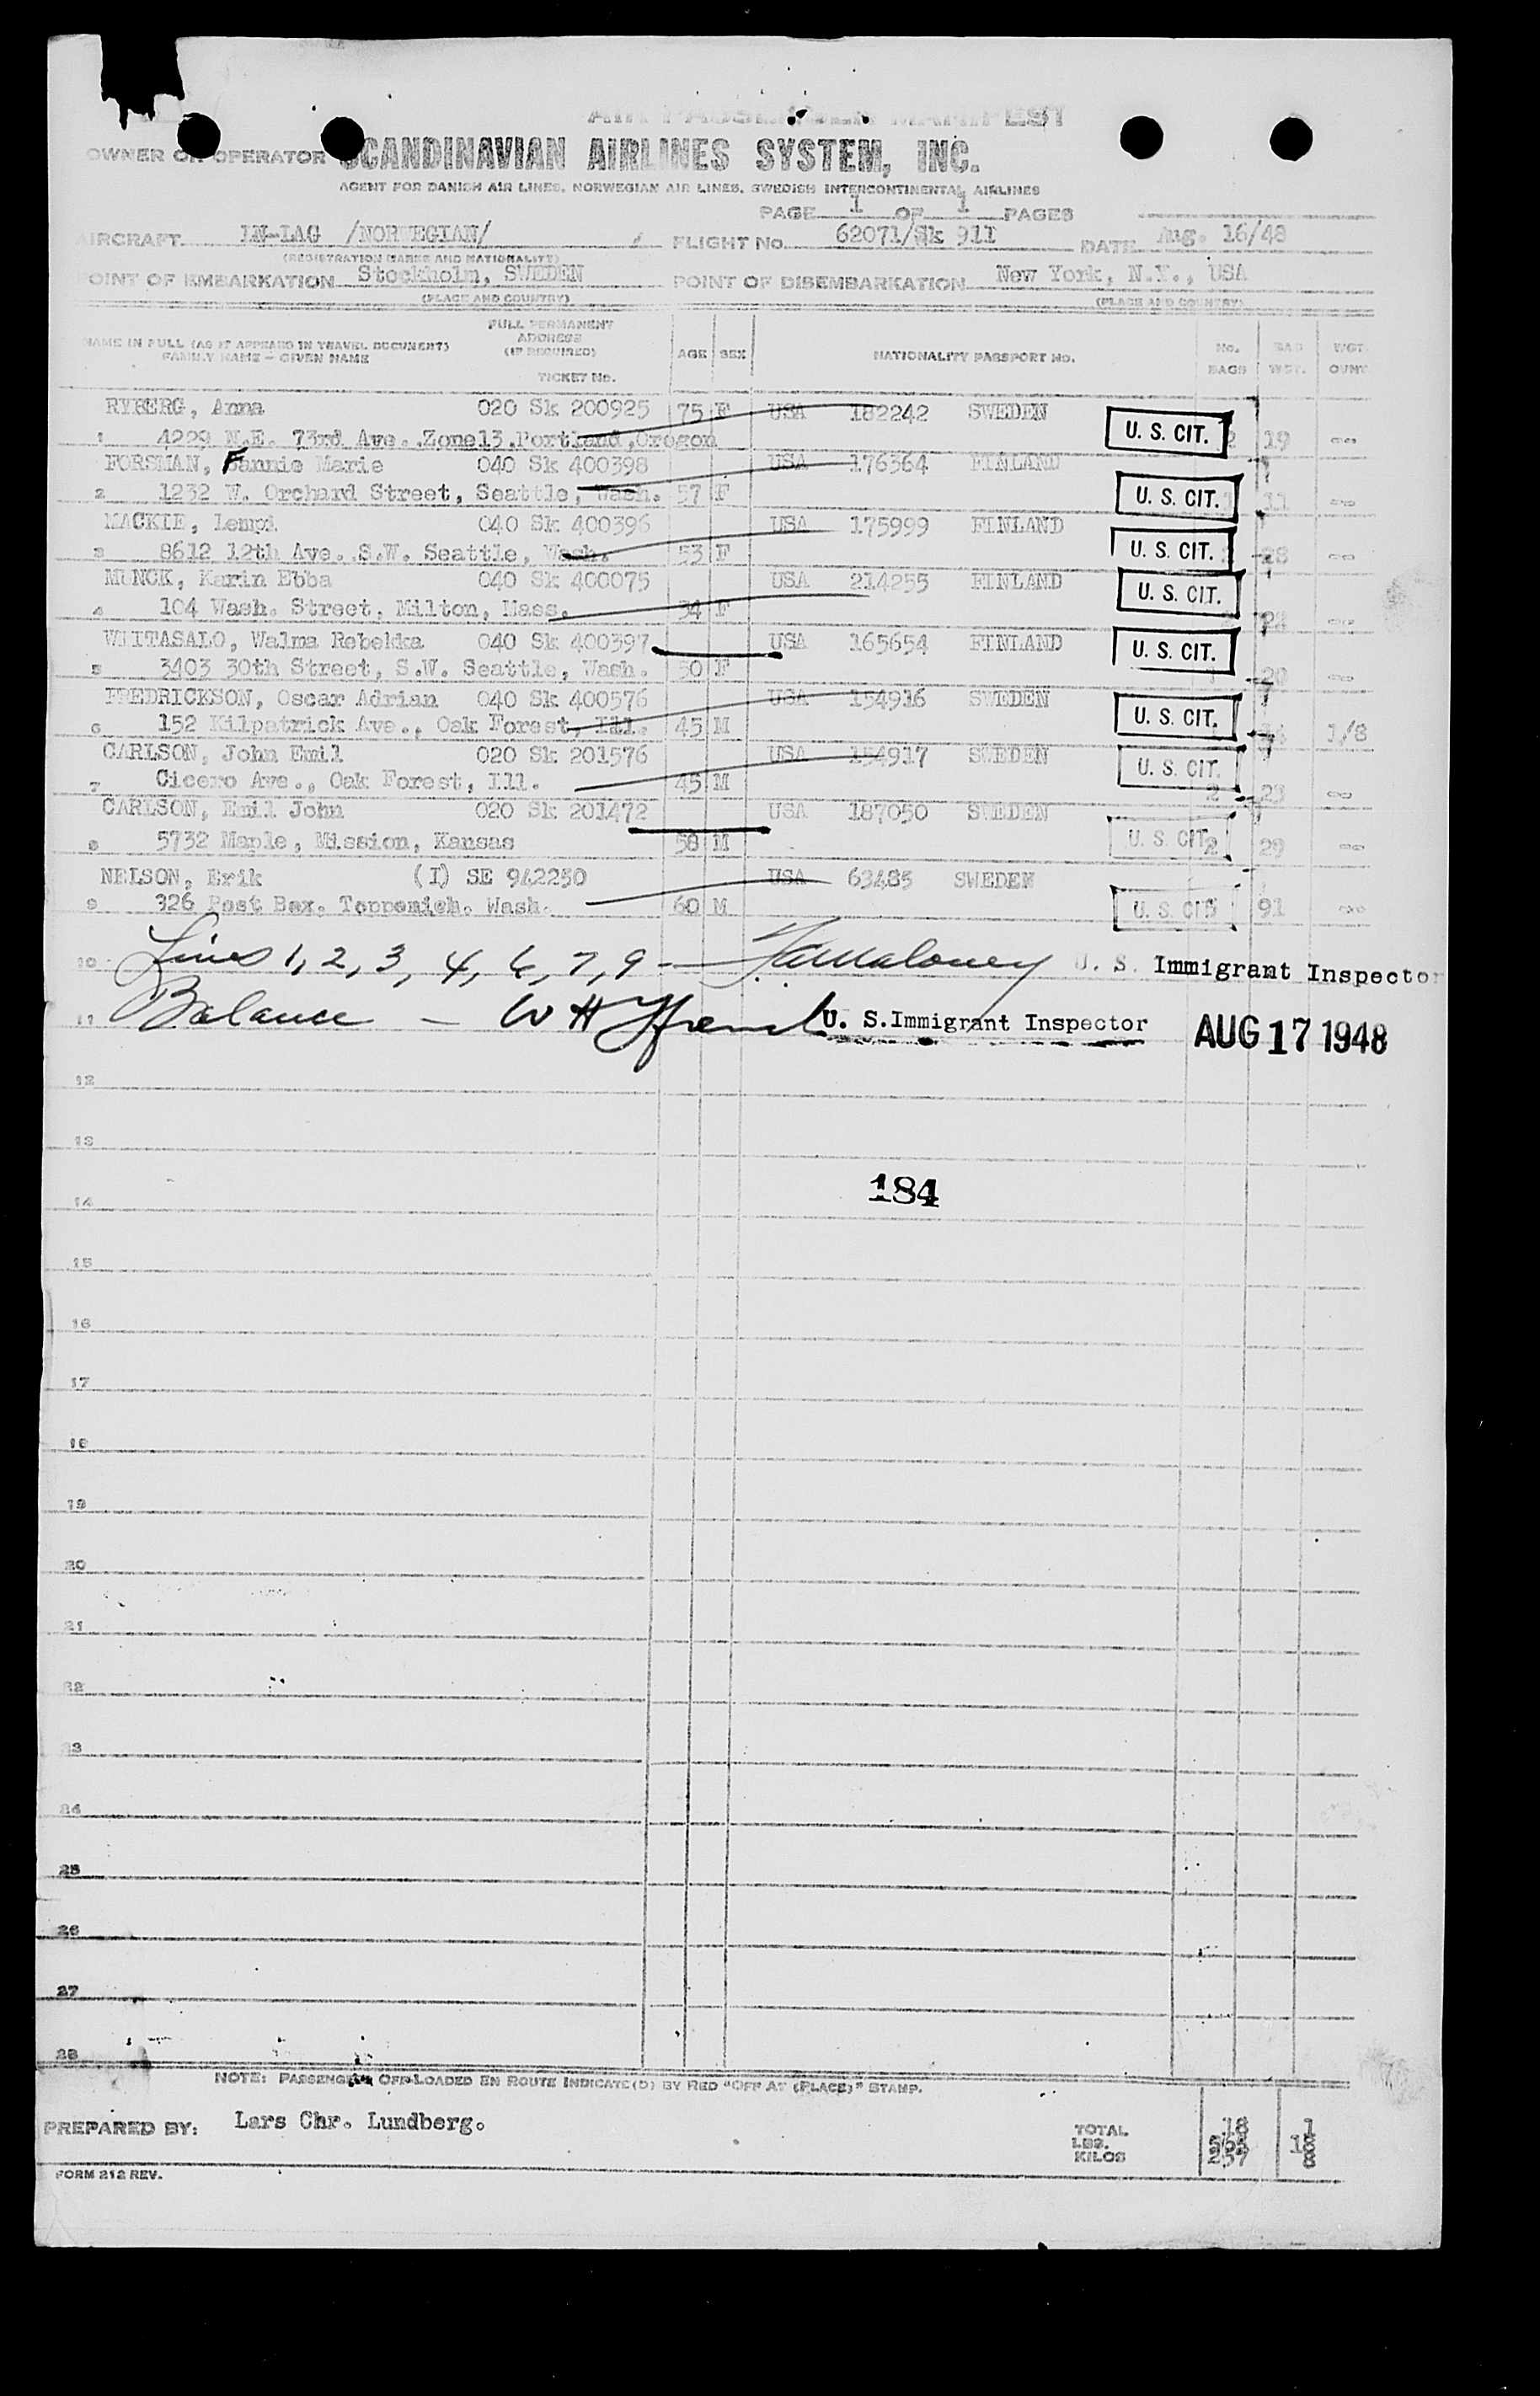 AIR PASSENGER MANIFEST
OWNER OR OPERATOR SCANDINAVIAN AIRLINES SYSTEM, INC.
AGENT FOR DANISH AIR LINES, NORWEGIAN AIR LINES, SWEDISH INTERCONTINENTAL AIRLINES
PAGE 1 OF 1 PAGES
AIRCRAFT LN-LAG /NORWEGIAN/ FLIGHT NO. 62071/Sk 911 DATE Aug. 16/48
(REGISTRATION MARKS AND NATIONALITY)
POINT OF EMBARKATION Stockholm, SWEDEN POINT OF DISEMBARKATION New York, N.Y., USA
(PLACE AND COUNTRY) (PLACE AND COUNTRY)
NAME IN FULL (AS IT APPEARS IN TRAVEL DOCUMENT) FAMILY NAME - GIVEN NAME FULL PERMANENT ADDRESS (IF REQUIRED) TICKET No. AGE SEX NATIONALITY PASSPORT No. No. BAGS BAG WGT. WGT.
RYBERG, Anna 020 Sk 200925 75 F USA 182242 SWEDEN U. S. CIT.
1 4229 N.E. 73rd Ave. ,Zone13,Portland,Oregon 2 19 --
FORSMAN, Fannie Marie 040 Sk 400398 USA 176364 FINLAND U. S. CIT.
2 1232 W. Orchard Street, Seattle, Wash. 57 F 11 --
MACKIE, Lempi 040 Sk 400396 USA 175999 FINLAND U. S. CIT.
3 8612 12th Ave. S.W. Seattle, Wash. 53 F 28 --
MUNCK, Karin Ebba 040 Sk 400075 USA 214255 FINLAND U. S. CIT.
4 104 Wash. Street, Milton, Mass. 34 F --
WIITASALO, Walma Rebekka 040 Sk 400397 USA 165654 FINLAND U. S. CIT.
5 3403 30th Street, S.W. Seattle, Wash. 50 F 20 --
FREDRICKSON, Oscar Adrian 040 Sk 400576 USA 154916 SWEDEN U. S. CIT.
6 152 Kilpatrick Ave., Oak Forest, Ill. 45 M 1/8
CARLSON, John Emil 020 Sk 201576 USA 154917 SWEDEN U. S. CIT.
7 Cicero Ave., Oak Forest, Ill. 45 M 2 23 --
CARLSON, Emil John 020 Sk 201472 USA 187050 SWEDEN
8 5732 Maple, Mission, Kansas 58 M U. S. CIT. 2 29 --
NELSON, Erik (I) SE 942250 USA 63485 SWEDEN
9 326 Post Box. Toppenish. Wash. 60 M U. S. CIT. 91 --
10 Lines 1, 2, 3, 4, 6, 7, 9 - Maloney U. S. Immigrant Inspector
11 Balance - W H Ffrench U. S. Immigrant Inspector AUG 17 1948
12
13
184
14
15
16
17
18
19
20
21
22
23
24
25
26
27
28
NOTE: PASSENGERS OFF-LOADED EN ROUTE INDICATE(D) BY RED "OFF AT (PLACE)" STAMP.
PREPARED BY: Lars Chr. Lundberg. TOTAL 18 1
LBS. 18
KILOS 257 8
FORM 212 REV.